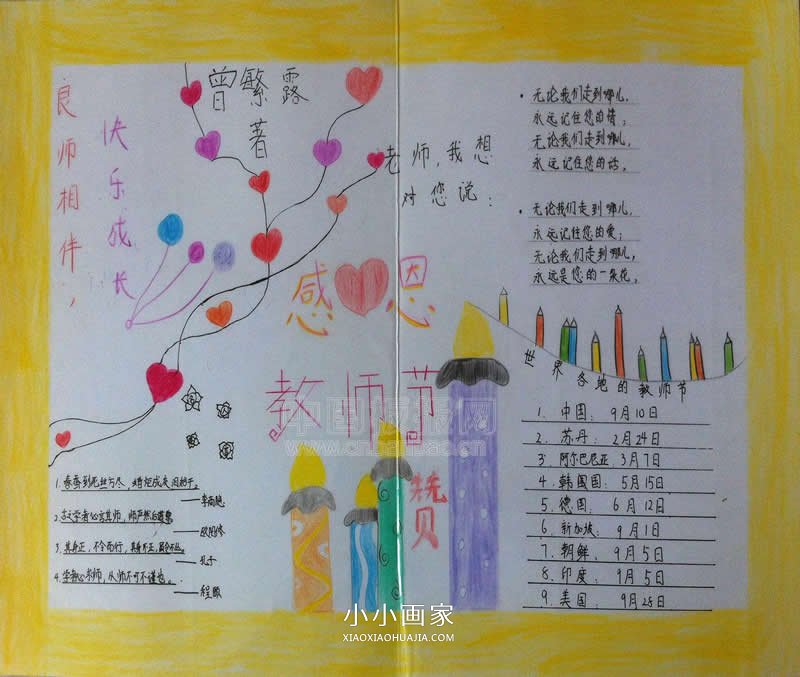 良师相伴，
快乐成长
曾繁露
著
老师，我想
对您说：
感恩
教师节
赞
·无论我们走到哪儿，
永远记住您的情；
无论我们走到哪儿，
永远记住您的话。
·无论我们走到哪儿，
永远记住您的爱；
无论我们走到哪儿，
永远是您的一朵花。
世界各地的教师节
1. 中国：9月10日
2. 苏丹：2月24日
3. 阿尔巴尼亚 3月7日
4. 韩国国：5月15日
5. 德国：6月12日
6. 新加坡：9月1日
7. 朝鲜．9月5日
8. 印度：9月5日
9. 美国：9月28日
1. 春蚕到死丝方尽，蜡炬成灰泪始干。
——李商隐
2. 古之学者必严其师，师严然后道尊
——欧阳修
3. 其身正，不令而行，其身不正，虽令不从。
——孔子
4.
——程颢
小小画家
XIAOXIAOHUAJIA.COM